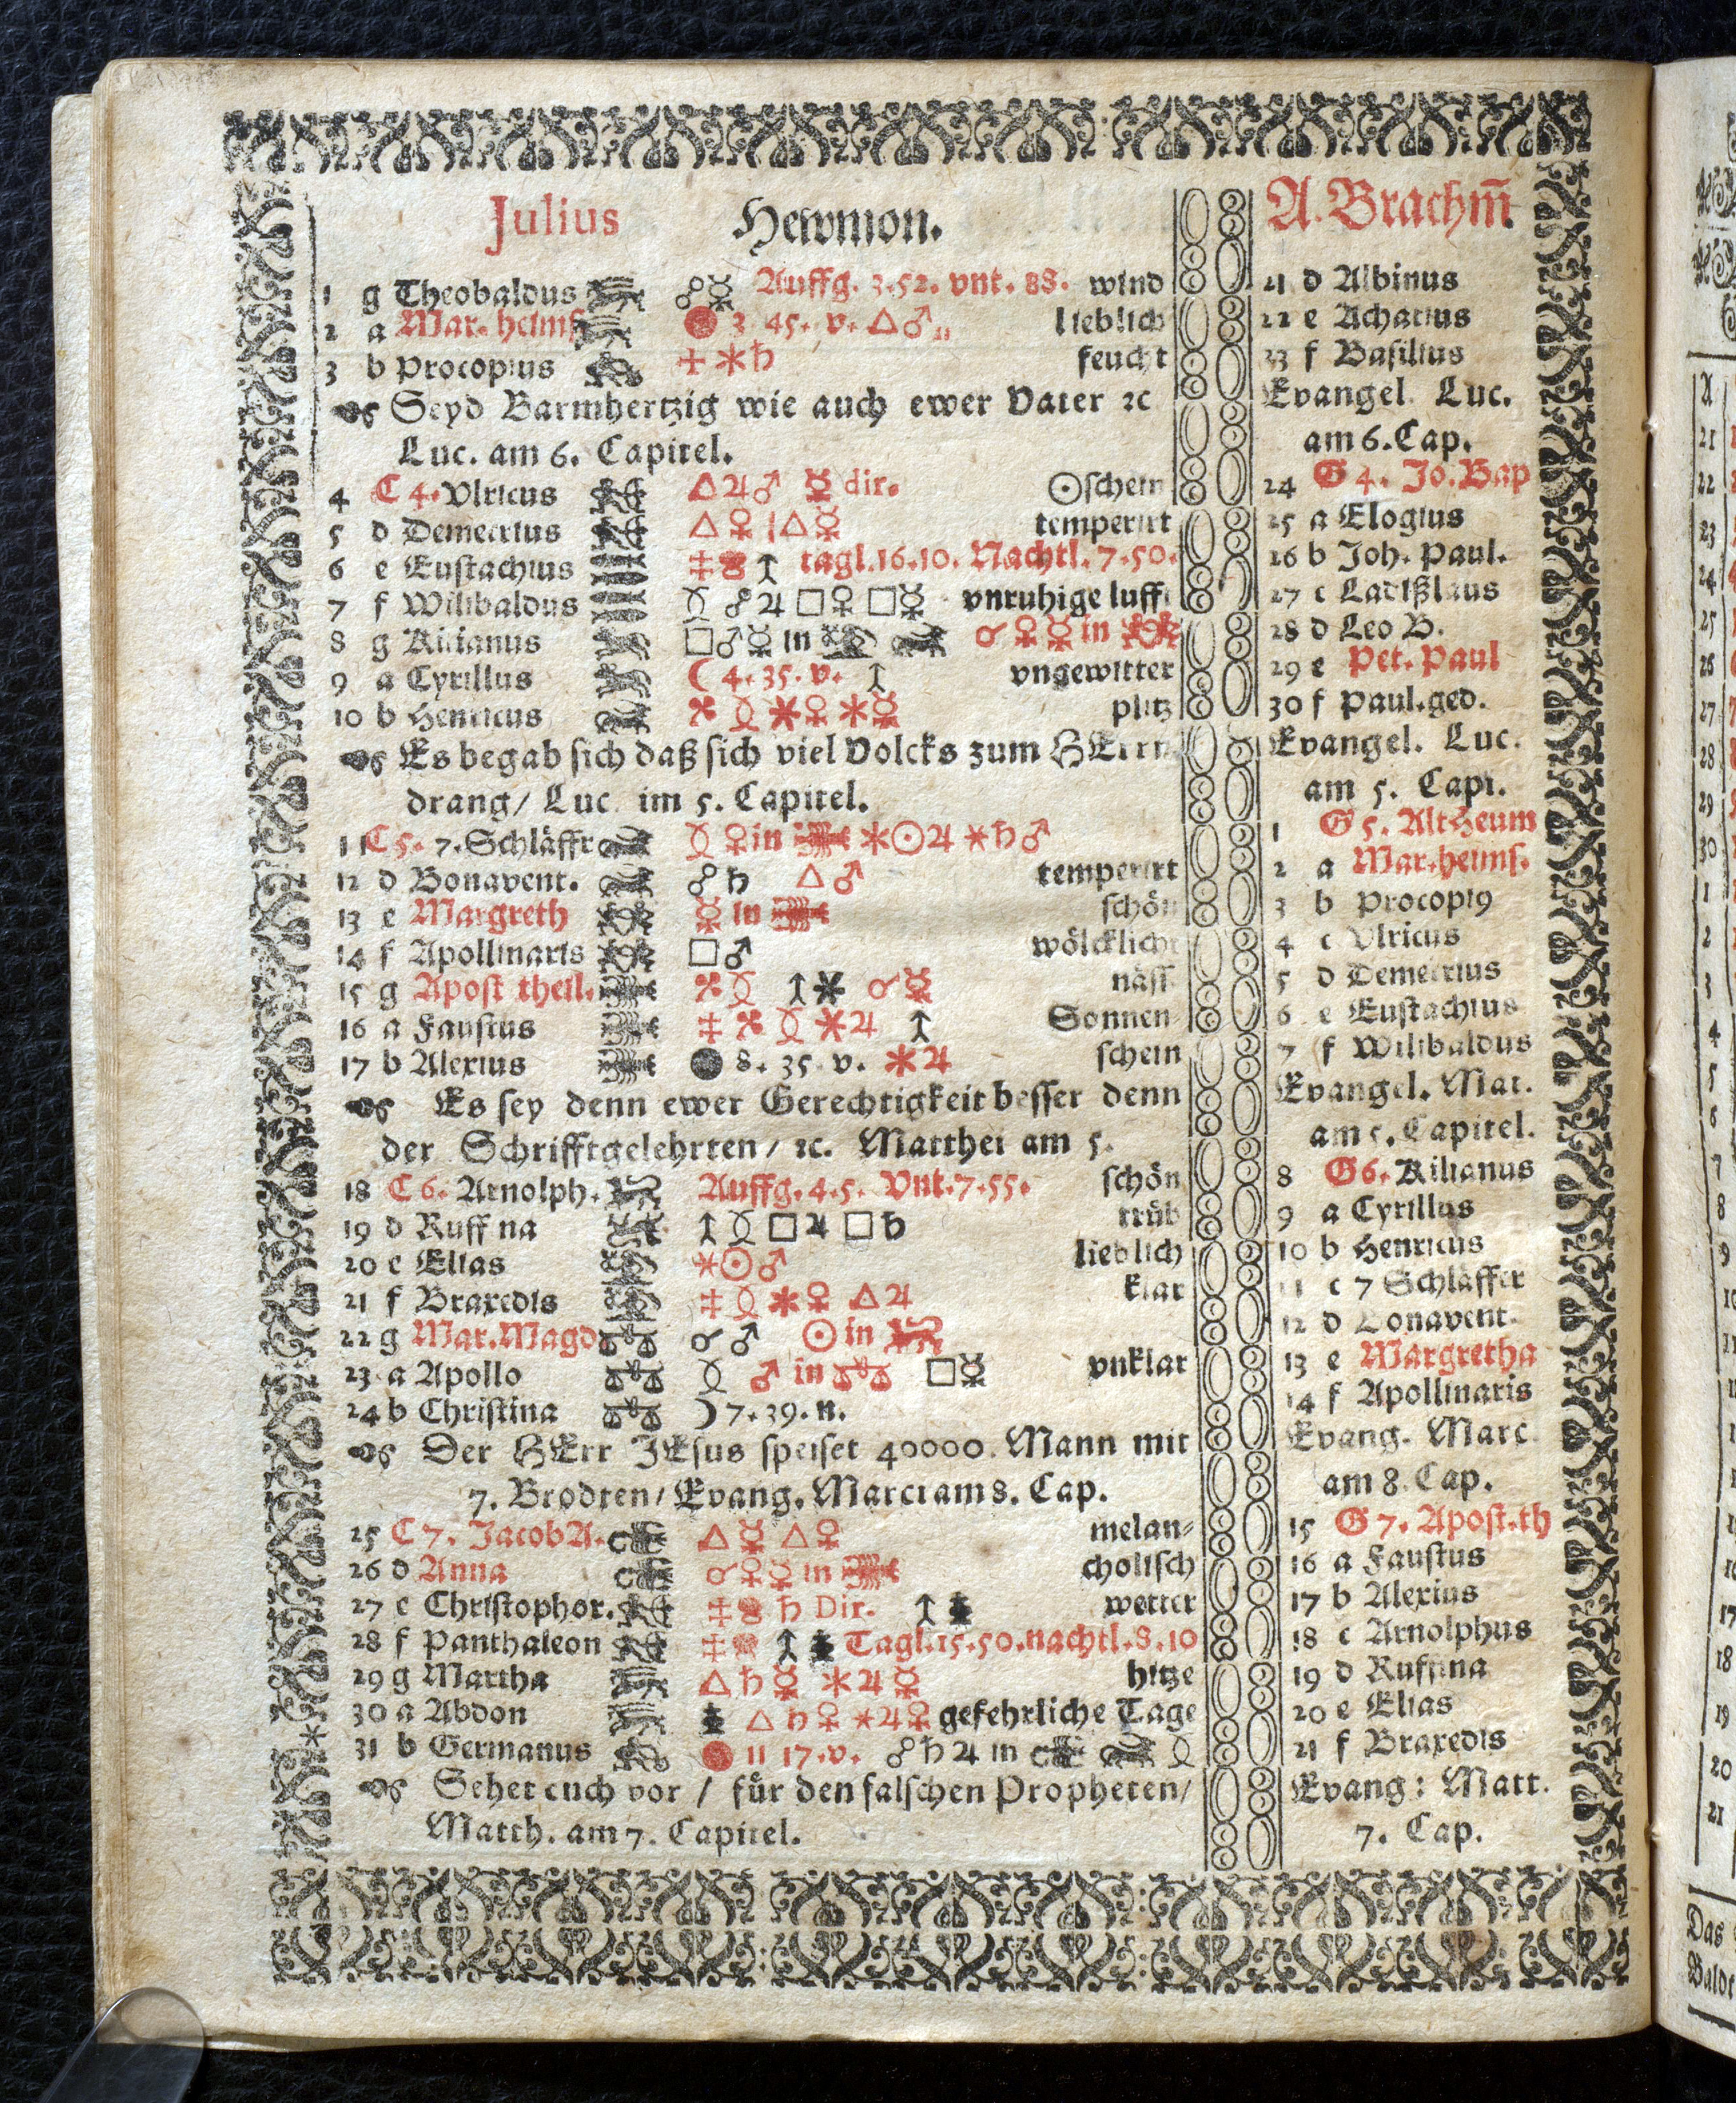 Julius Hewmon.
1 g Theobaldus ☍☿ Auffg. 3.52. vnt. 88. wind
2 a Mar. heims 3 45. v. △♂ lieblich
3 b Procopius ✶♄ feucht
Seyd Barmhertzig wie auch ewer Vater ꝛc
Luc. am 6. Capitel.
4 C 4. Vlricus △♃♂ ☿ dir. ☉schein
5 d Demetrius △♀ △☿ temperirt
6 e Eustachius tagl. 16.10. Nachtl. 7.50.
7 f Wilibaldus ☍♃□♀□☿ vnruhige lufft
8 g Kilianus □♂☿ in ☌♀☿ in
9 a Cyrillus ☾ 4. 35. v. vngewitter
10 b Henricus ✶♀✶☿ plitz
Es begab sich daß sich viel Volcks zum HErrn
drang/ Luc im 5. Capitel.
11 C 5. 7. Schläffr ♀ in ✶☉♃ ✶♄♂
12 d Bonavent. ☍♄ △♂ temperirt
13 e Margreth ☿ in schön
14 f Apollinaris □♂ wölcklicht
15 g Apost theil. ☌☿ näss
16 a Faustus ✶♃ Sonnen
17 b Alexius 8. 35. v. ✶♃ schein
Es sey denn ewer Gerechtigkeit besser denn
der Schrifftgelehrten/ ꝛc. Matthei am 5.
18 C 6. Arnolph. Auffg. 4.5. Vnt. 7.55. schön
19 d Ruffina □♃ □♄ trüb
20 e Elias ✶☉♂ lieblich
21 f Braxedis ✶♀ △♃ klar
22 g Mar. Magd ☌♂ ☉ in
23 a Apollo ♂ in □☿ vnklar
24 b Christina ☽ 7. 39. n.
Der HErr JEsus speiset 40000. Mann mit
7. Brodten/ Evang. Marci am 8. Cap.
25 C 7. Jacob A. △☿ △♀ melan=
26 d Anna ☌♀☿ in cholisch
27 e Christophor. ♄ Dir. wetter
28 f Panthaleon Tagl. 15.50. nachtl. 8.10
29 g Martha △♄☿ ✶♃☿ hitze
30 a Abdon △♄♀ ✶♃♀ gefehrliche Tage
31 b Germanus 11 17. v. ☍♄♃ in
Sehet euch vor / für den falschen Propheten/
Matth. am 7. Capitel.
A. Brachm̃.
21 d Albinus
22 e Achatius
23 f Basilius
Evangel. Luc.
am 6. Cap.
24 G 4. Jo. Bap
25 a Elogius
26 b Joh. Paul.
27 c Ladißlaus
28 d Leo B.
29 e Pet. Paul
30 f Paul. ged.
Evangel. Luc.
am 5. Capi.
1 G 5. Alt Heum
2 a Mar. heims.
3 b Procopi9
4 c Vlricus
5 d Demetrius
6 e Eustachius
7 f Wilibaldus
Evangel. Mat.
am 5. Capitel.
8 G 6. Kilianus
9 a Cyrillus
10 b Henricus
11 c 7 Schläffer
12 d Bonavent.
13 e Margretha
14 f Apollinaris
Evang. Marc.
am 8. Cap.
15 G 7. Apost. th
16 a Faustus
17 b Alexius
18 c Arnolphus
19 d Ruffina
20 e Elias
21 f Braxedis
Evang: Matt.
7. Cap.